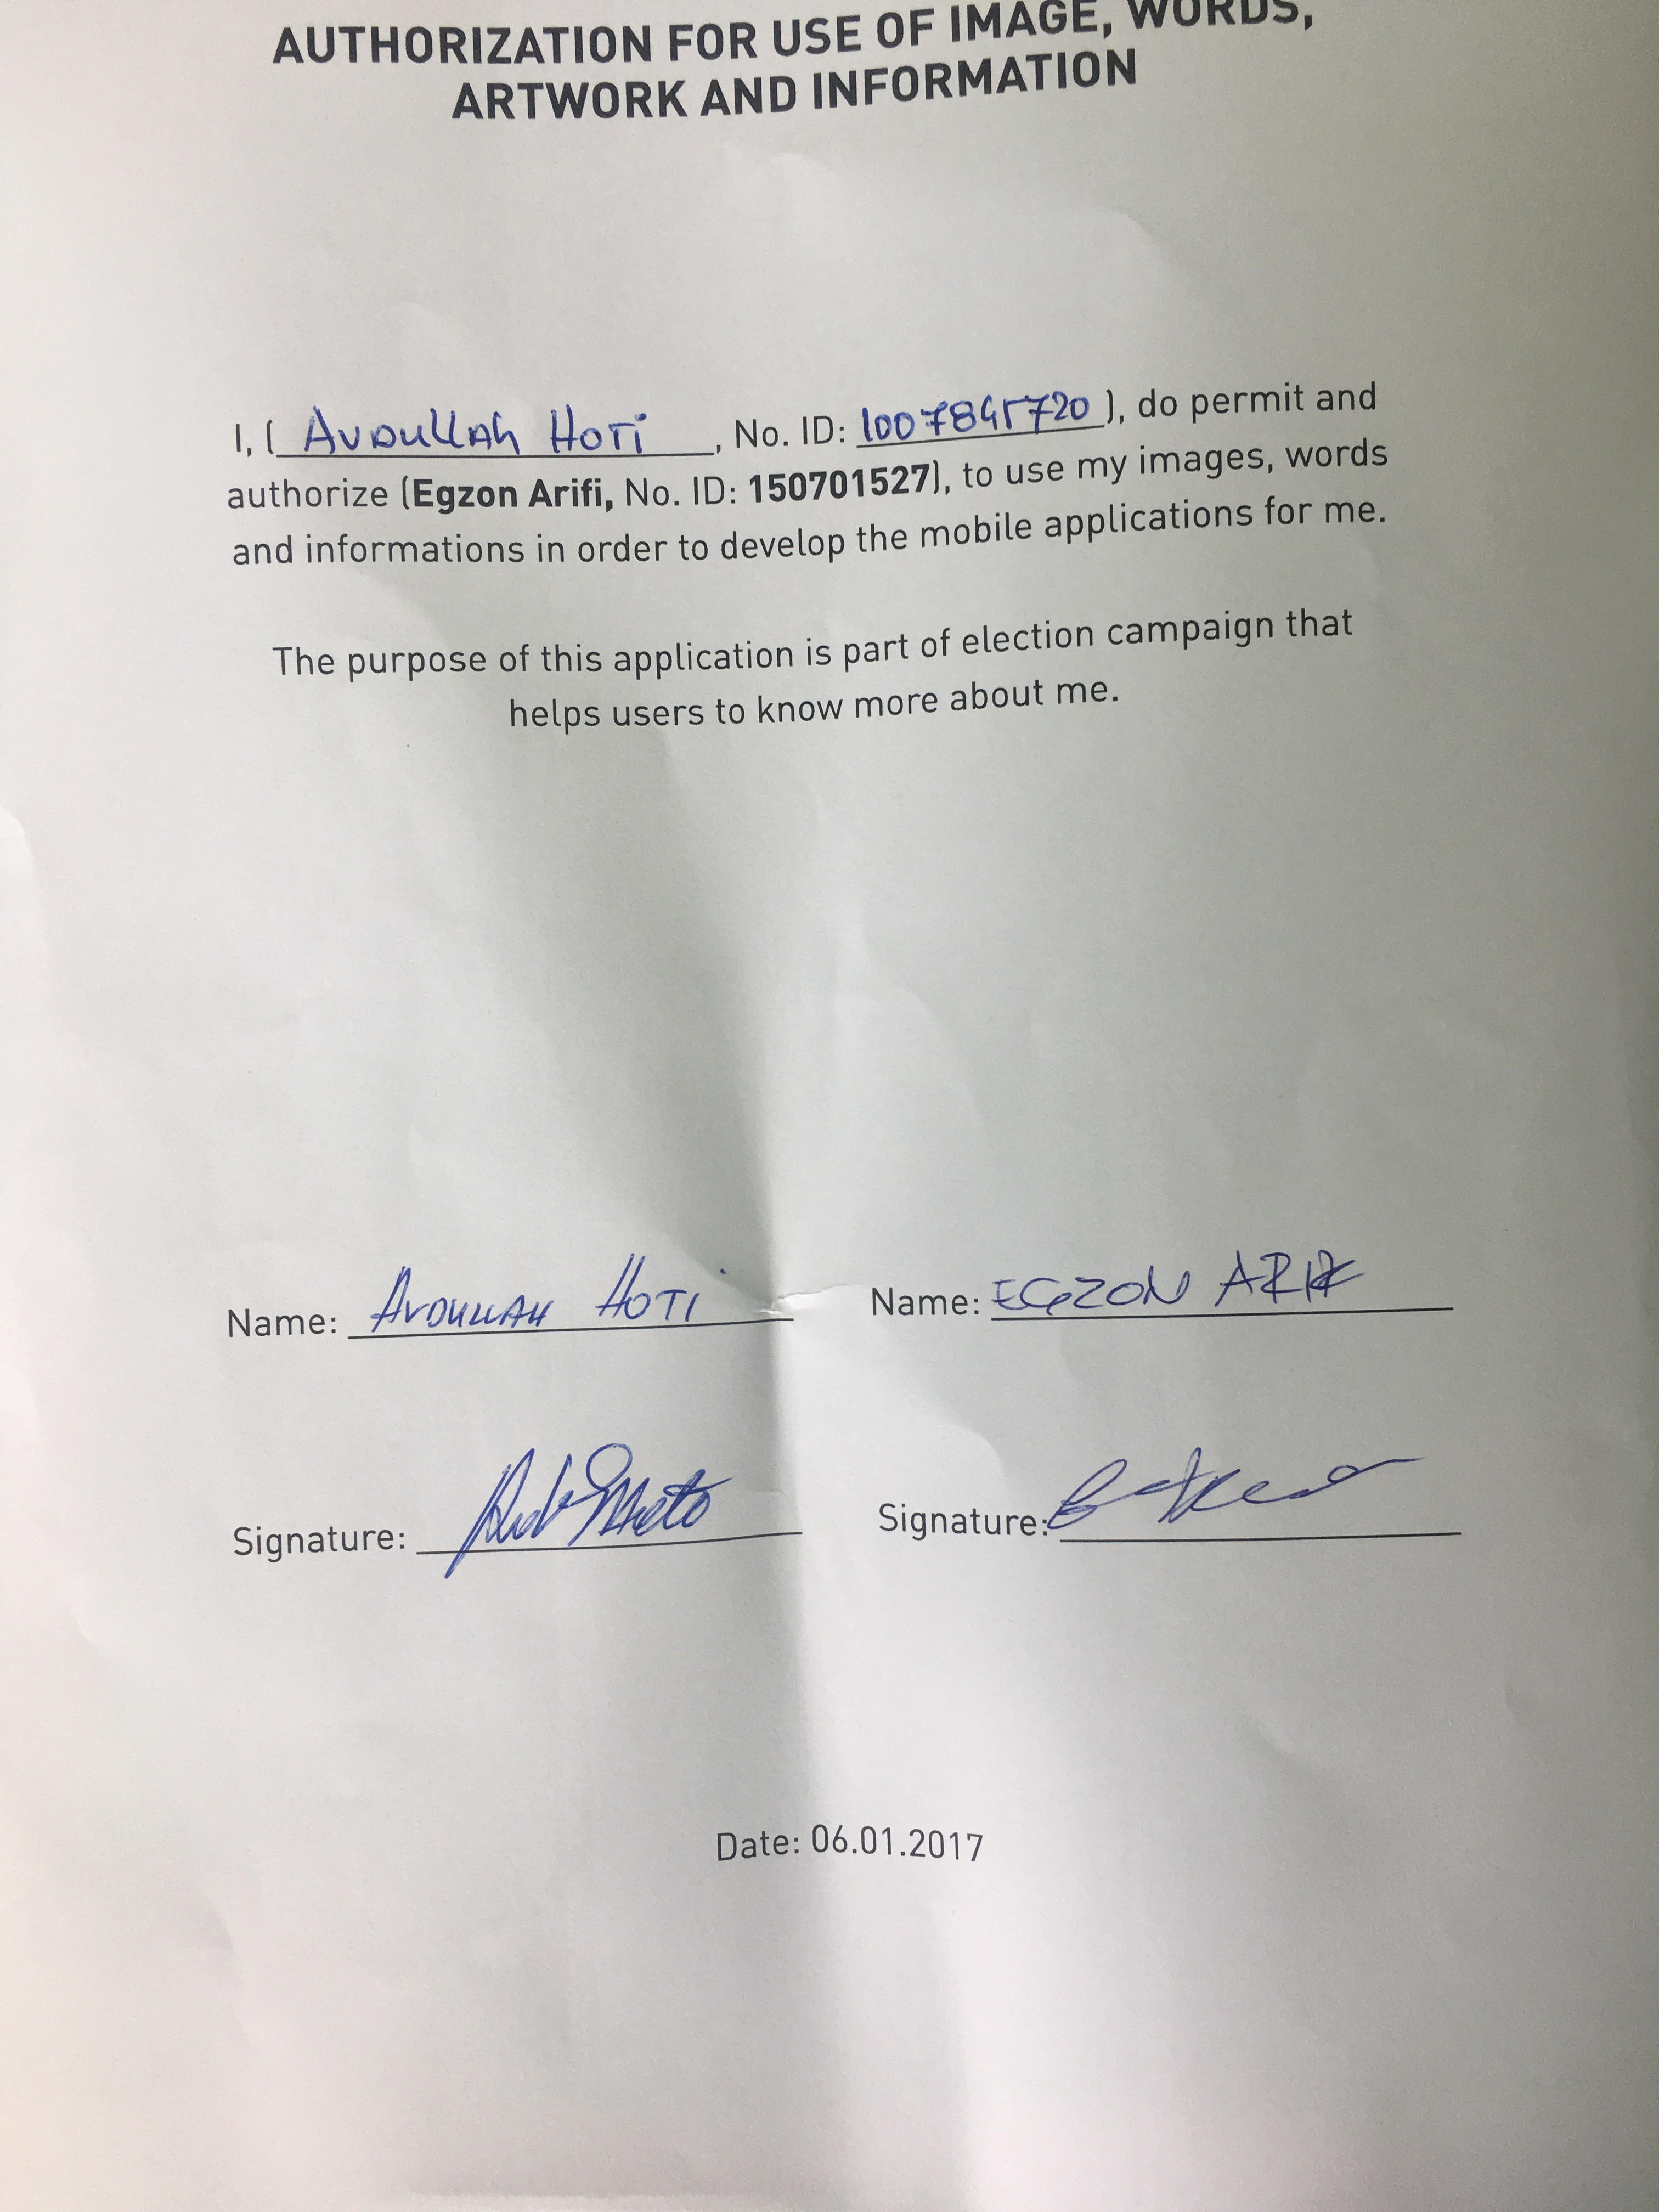 AUTHORIZATION FOR USE OF IMAGE, WORDS,
ARTWORK AND INFORMATION
I, ( Avdullah Hoti , No. ID: 1007845720 ), do permit and
authorize (Egzon Arifi, No. ID: 150701527), to use my images, words
and informations in order to develop the mobile applications for me.
The purpose of this application is part of election campaign that
helps users to know more about me.
Name: AVDULLAH HOTI Name: EGZON ARIFI
Signature: Signature:
Date: 06.01.2017